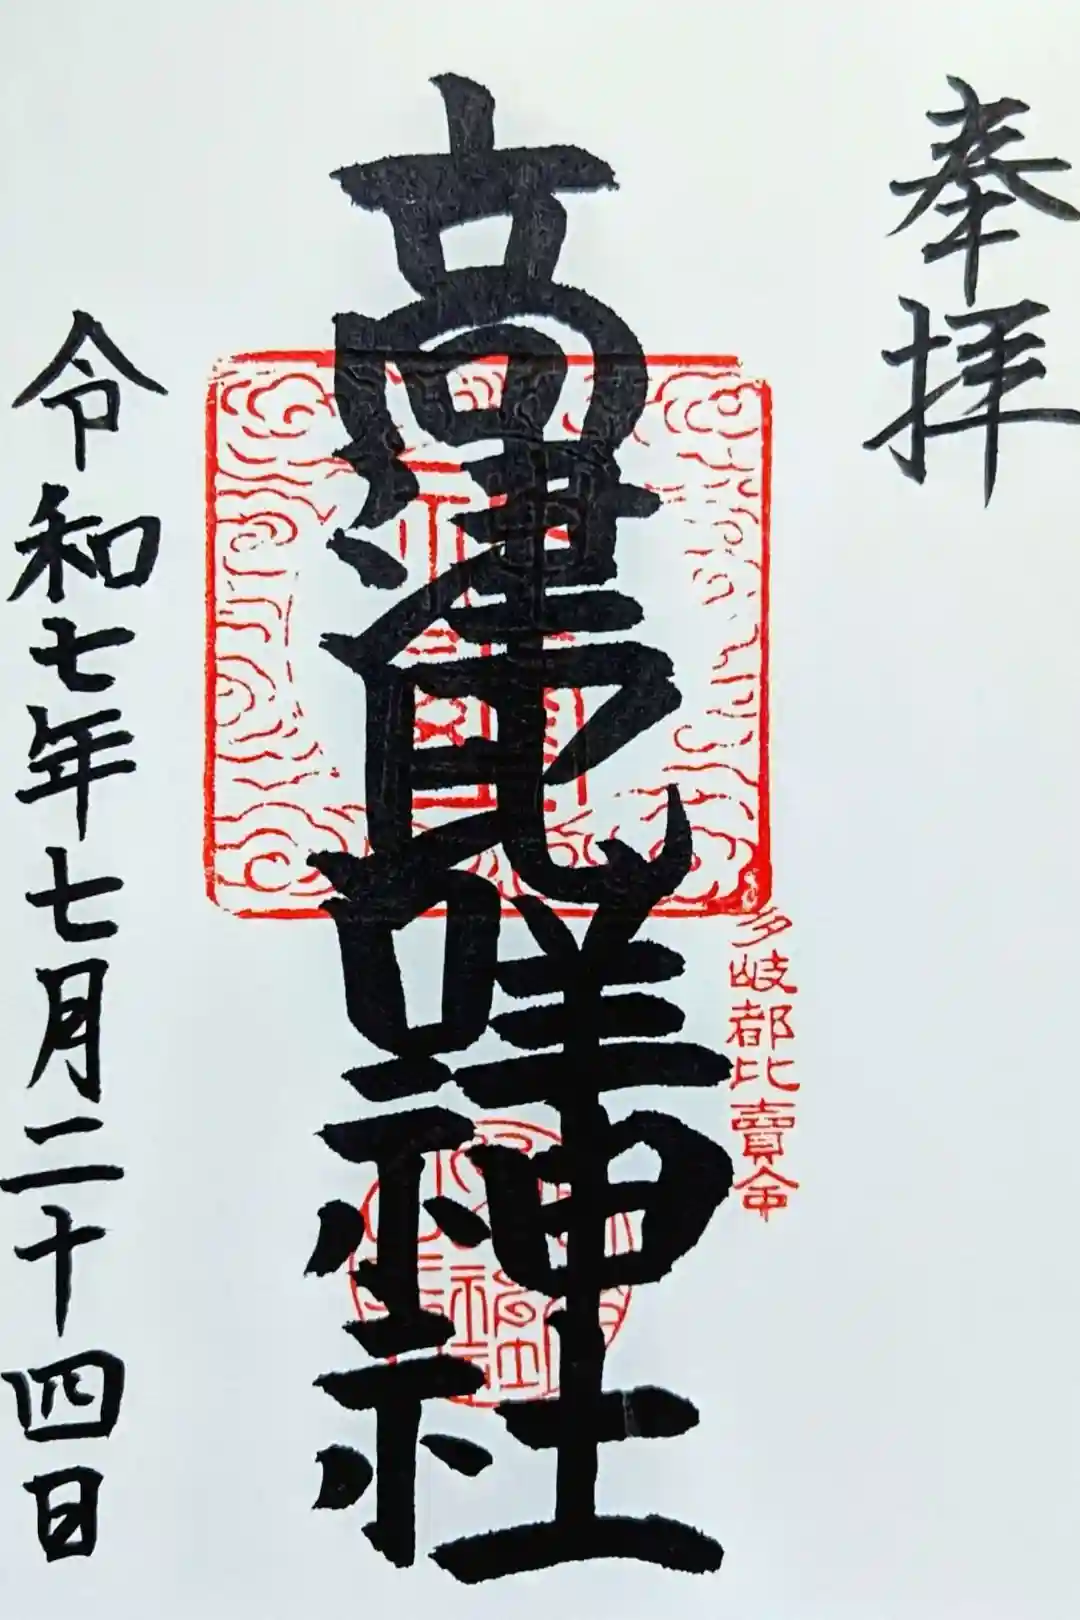 奉拝
高津咩神社
多岐都比賣命
令和七年七月二十四日